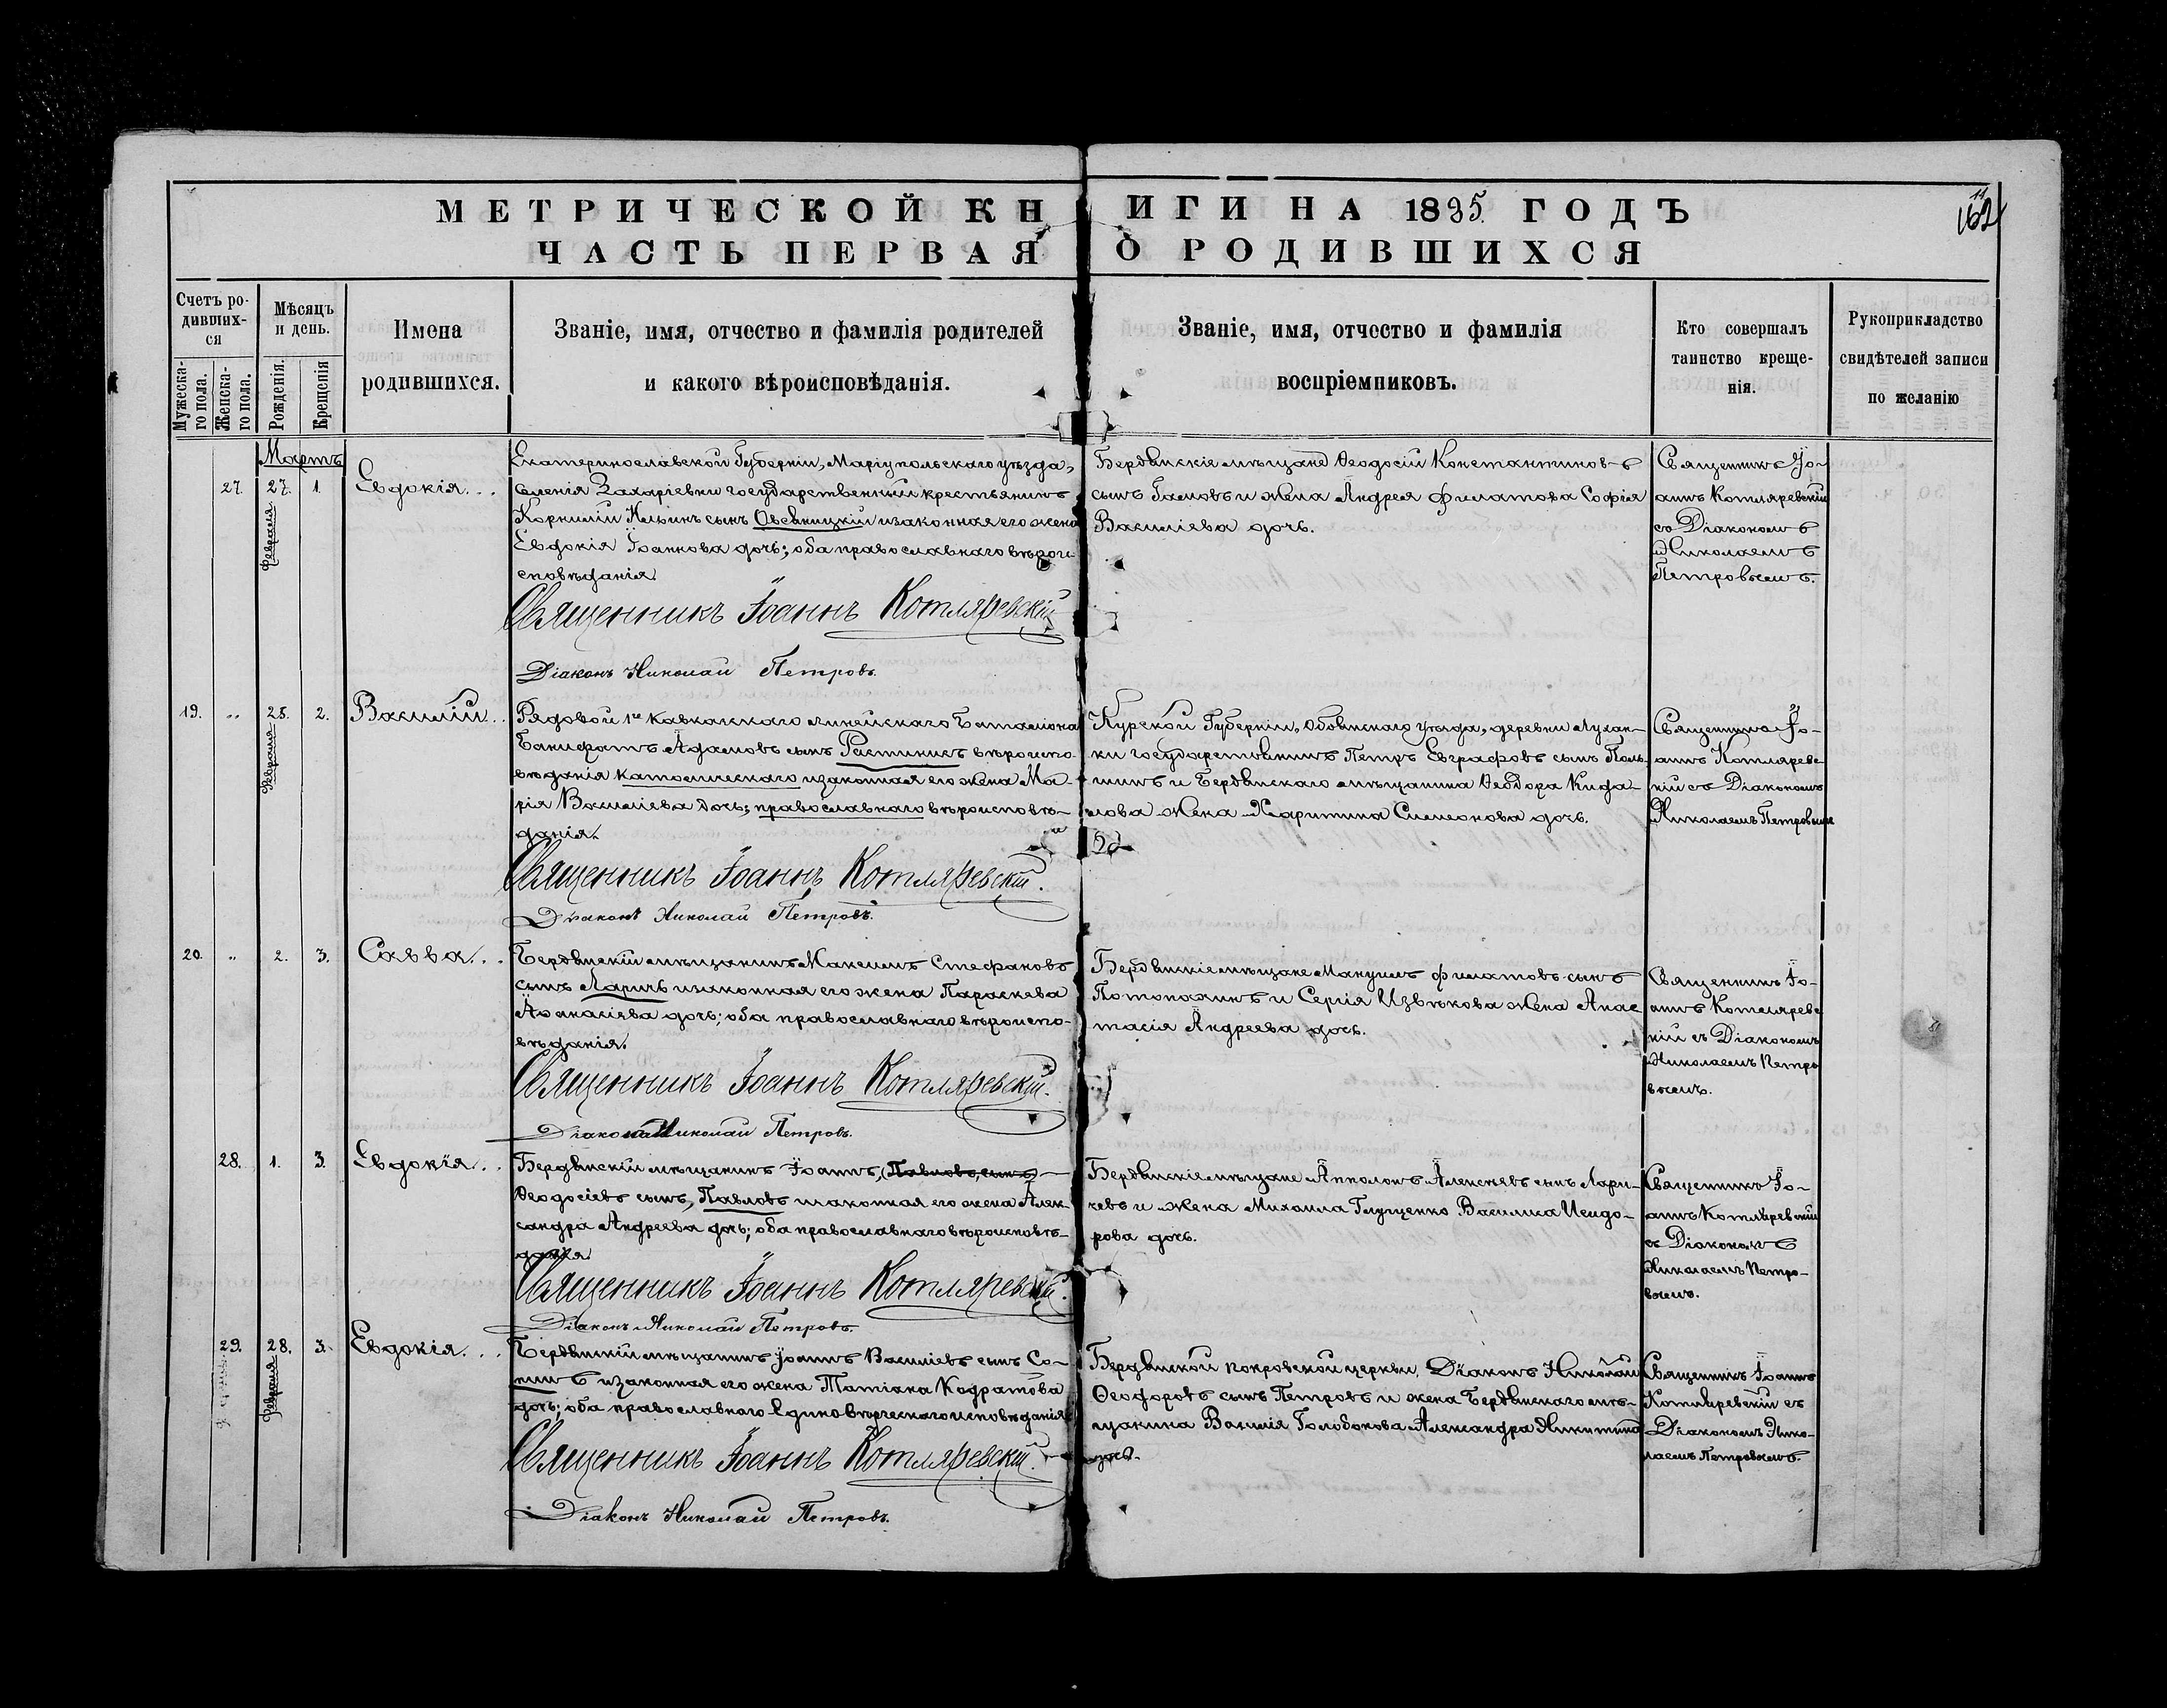 МЕТРИЧЕСКОЙ КНИГИ НА 1895. ГОДЪ
ЧАСТЬ ПЕРВАЯ О РОДИВШИХСЯ
162
Счетъ ро-
дивших-
ся
Мужеска-
го пола.
Женска-
го пола.
Мѣсяцъ
и день.
Рожденія.
Крещенія
Имена
родившихся.
Званіе, имя, отчество и фамилія родителей
и какого вѣроисповѣданія.
Званіе, имя, отчество и фамилія
воспріемниковъ.
Кто совершалъ
таинство креще-
нія.
Рукоприкладство
свидѣтелей записи
по желанію
Мартъ
27. 27. 1. Евдокія...
Февраля
Екатеринославской Губерніи, Маріупольскаго уѣзда,
селенія Захаріевки государственный крестьянинъ
Корнилій Ильинъ сынъ и законная его жена
Евдокія Іоаннова дочь; оба православнаго вѣрои-
сповѣданія.
Священникъ Іоаннъ Котляревскій
Діаконъ Николай Петровъ.
Бердянскіе мѣщане Ѳеодосій Константиновъ
сынъ Гамовъ и жена Андрея Филатова Софія
Василіева дочь.
Священникъ Іо-
аннъ Котляревскій
съ Діакономъ
Николаемъ
Петровымъ.
19. " 25. 2. Василій..
Февраля
Рядовой 1го Кавказскаго линейскаго Баталіона
Адамовъ сынъ вѣроиспо-
вѣданія католическаго и законная его жена Ма-
рія Василіева дочь; православнаго вѣроисповѣ-
данія.
Священникъ Іоаннъ Котляревскій.
Діаконъ Николай Петровъ.
Курской Губерніи, Обоянскаго уѣзда, деревни Лухан-
ки Петръ Евграфовъ сынъ
и Бердянскаго мѣщанина Ѳеодора Кида-
лова жена Харитина Симеонова дочь.
Священникъ Іо-
аннъ Котляревс-
кій съ Діакономъ
Николаемъ Петровымъ
20. " 2. 3. Савва..
Бердянскій мѣщанинъ Максимъ Стефановъ
сынъ Ларичъ и законная его жена Параскева
Аѳанасіева дочь; оба православнаго вѣроиспо-
вѣданія.
Священникъ Іоаннъ Котляревскій.
Діаконъ Николай Петровъ.
Бердянскіе мѣщане Мануилъ Филатовъ сынъ
и Сергія Извѣкова жена Анас-
тасія Андреева дочь.
Священникъ Іо-
аннъ Котляревс-
кій съ Діакономъ
Николаемъ Петро-
вымъ.
28. 1. 3. Евдокія..
Бердянскій мѣщанинъ Іоаннъ, (Павловъ, сынъ)
Ѳеодосіевъ сынъ, Павловъ и законная его жена Алек-
сандра Андреева дочь; оба православнаго вѣроисповѣ-
данія.
Священникъ Іоаннъ Котляревскій.
Діаконъ Николай Петровъ.
Бердянскіе мѣщане Апполонъ Алексѣевъ сынъ Лари-
чевъ и жена Михаила Глущенко Василиса Исидо-
рова дочь.
Священникъ Іо-
аннъ Котляревскій
съ Діакономъ
Николаемъ Петро-
вымъ.
29. 28. 3. Евдокія...
Февраля
Бердянскій мѣщанинъ Іоаннъ Василіевъ сынъ Со-
нинъ и законная его жена Татіана Кодратова
дочь; оба православнаго Единовѣрческаго исповѣданія
Священникъ Іоаннъ Котляревскій.
Діаконъ Николай Петровъ.
Бердянской покровской церкви, Діаконъ Николай
Ѳеодоровъ сынъ Петровъ и жена Бердянскаго мѣ-
щанина Василія Голобокова Александра Никитина
дочь.
Священникъ Іоаннъ
Котляревскій съ
Діакономъ Нико-
лаемъ Петровымъ.